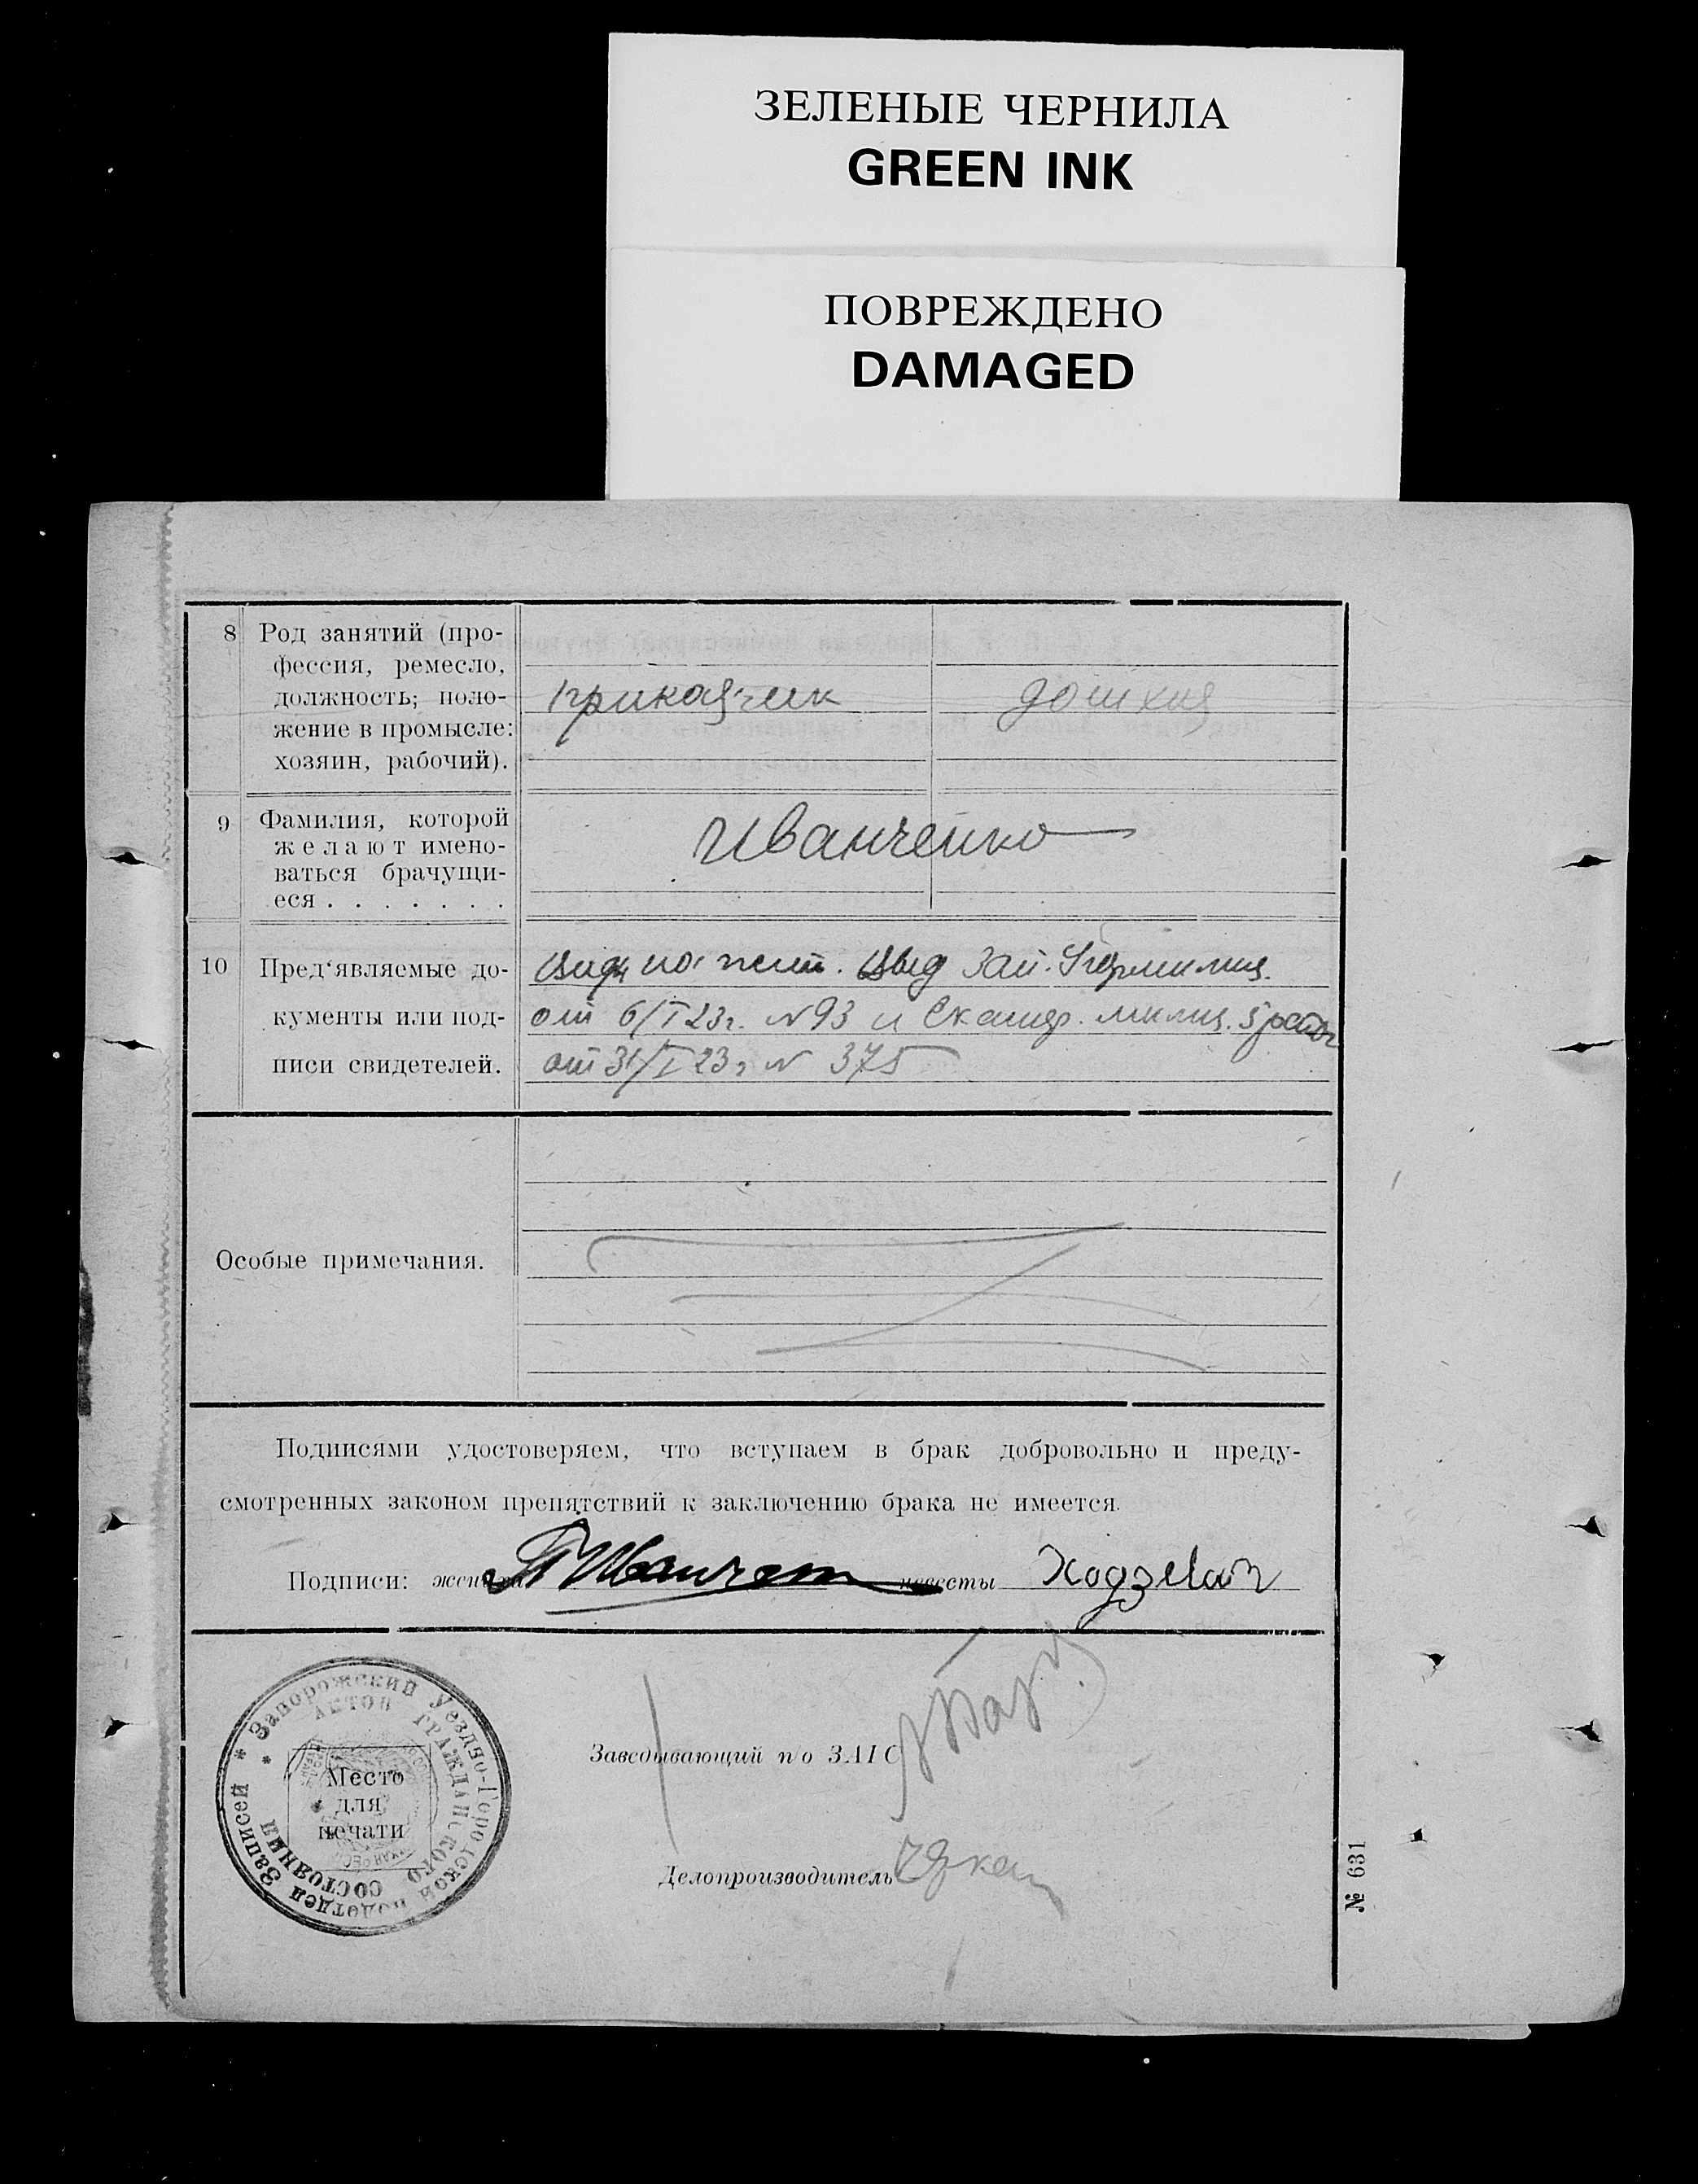 ЗЕЛЕНЫЕ ЧЕРНИЛА
GREEN INK
ПОВРЕЖДЕНО
DAMAGED
8 Род занятий (про-
фессия, ремесло,
должность; поло-
жение в промысле:
хозяин, рабочий).
приказчик
9 Фамилия, которой
желают имено-
ваться брачущи-
еся . . . . . . .
Иванченко
10 Пред'являемые до-
кументы или под-
писи свидетелей.
от 6/I 23г. N 93 и милиц.
от 31/I 23г N 375
Особые примечания.
Подписями удостоверяем, что вступаем в брак добровольно и преду-
смотренных законом препятствий к заключению брака не имеется.
Подписи: жениха невесты
Запорожский Уездно-Городской подотдел Записей
АКТОВ ГРАЖДАНСКОГО СОСТОЯНИЯ
Место
для
печати
Заведывающий п/о ЗАГС
Делопроизводитель
№ 631